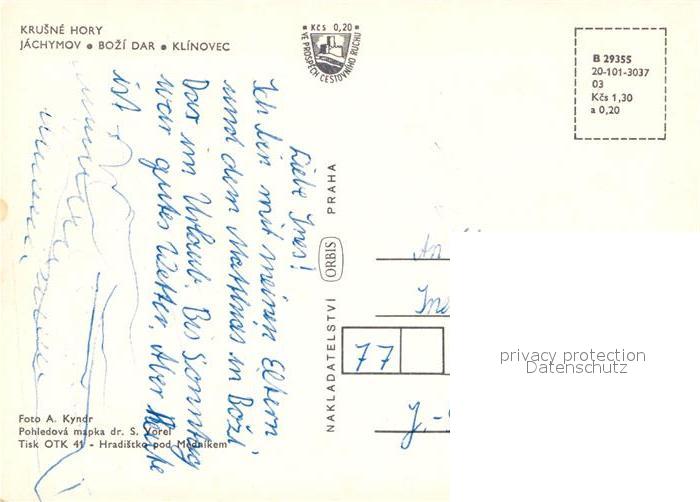 KRUŠNÉ HORY
JÁCHYMOV ● BOŽÍ DAR ● KLÍNOVEC
Kčs 0,20
VE PROSPĚCH CESTOVNÍHO RUCHU
B 29355
20-101-3037
03
Kčs 1,30
a 0,20
Liebe Ines!
Ich bin mit meinen Eltern
und dem Matthias in Boží
Dar im Urlaub. Bis Sonntag
war gutes Wetter. Aber heute
ist
NAKLADATELSTVÍ ORBIS PRAHA
An
77
J-
privacy protection
Datenschutz
Foto A. Kyndr
Pohledová mapka dr. S. Vorel
Tisk OTK 41 - Hradištko pod Medníkem